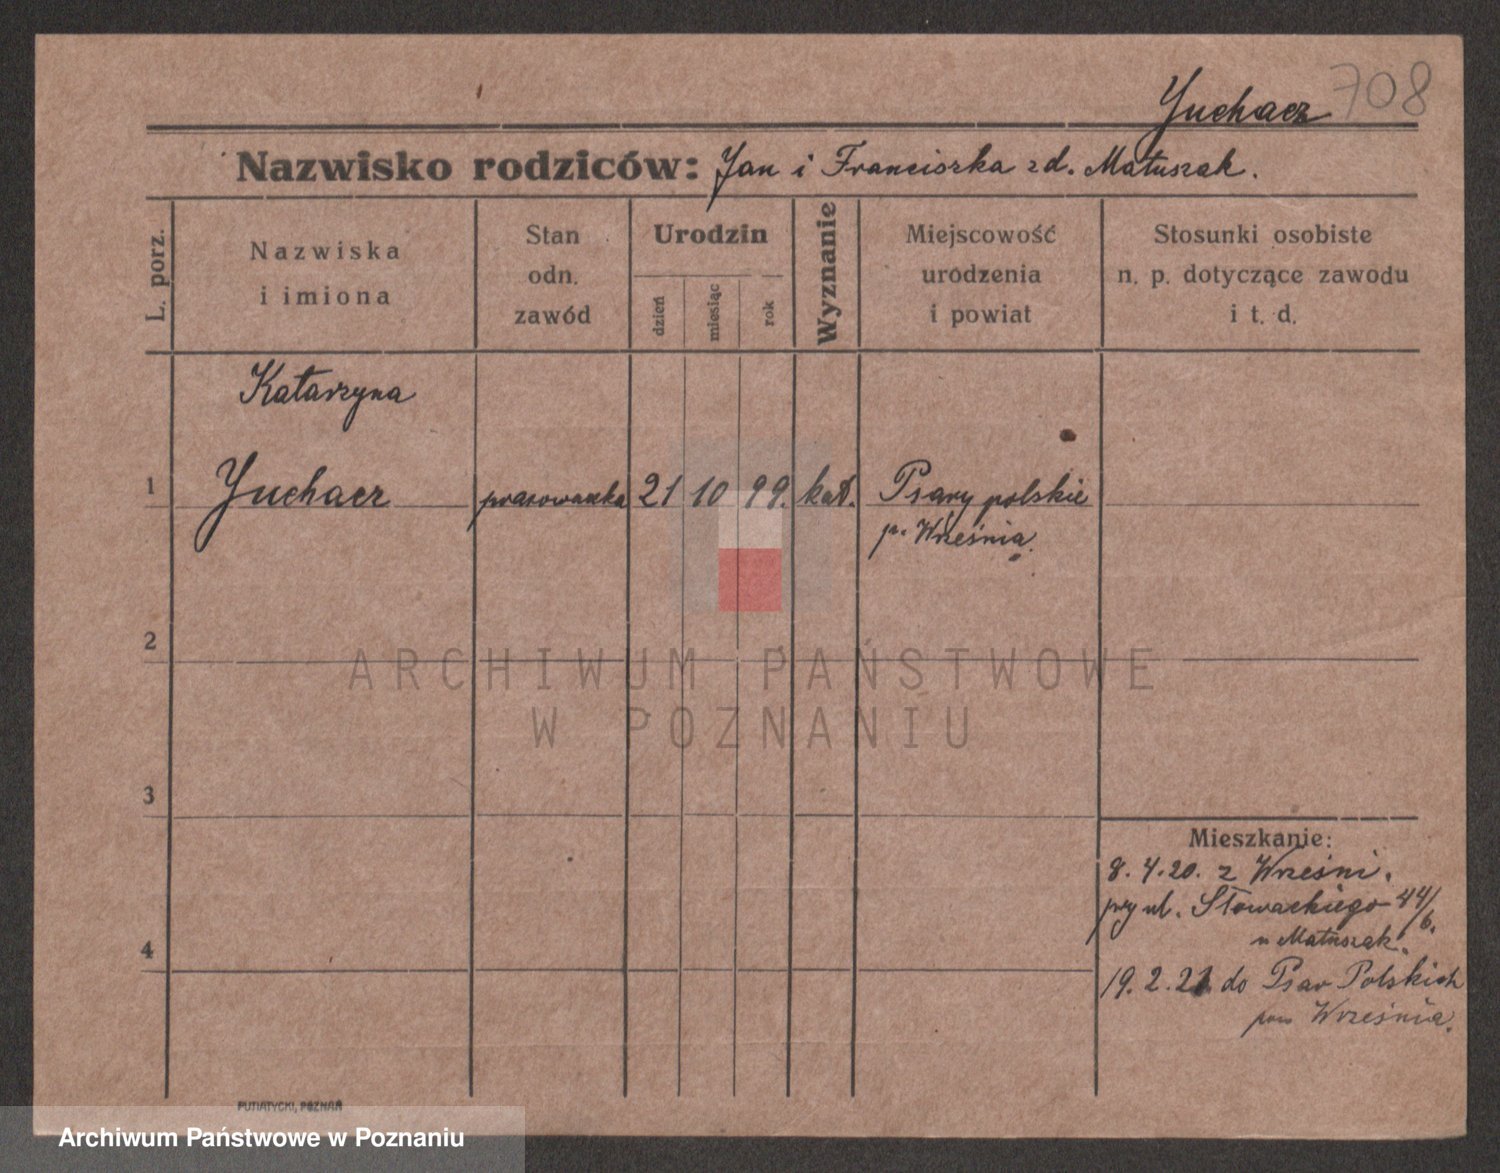 Juchacz 708
Nazwisko rodziców: Jan i Franciszka zd. Matuszak.
L. porz.
Nazwiska
i imiona
Stan
odn.
zawód
Urodzin
dzień
miesiąc
rok
Wyznanie
Miejscowość
urodzenia
i powiat
Stosunki osobiste
n. p. dotyczące zawodu
i t. d.
Katarzyna
1 Juchacz prasowaczka 21 10 99. kat. Psary polskie
p. Września.
2
ARCHIWUM PAŃSTWOWE
W POZNANIU
3
Mieszkanie:
8. 4. 20. z Wrześni.
przy ul. Słowackiego 44/6.
u Matuszak.
4
19. 2. 21. do Psar Polskich
pow Września.
PUTIATYCKI, POZNAŃ
Archiwum Państwowe w Poznaniu